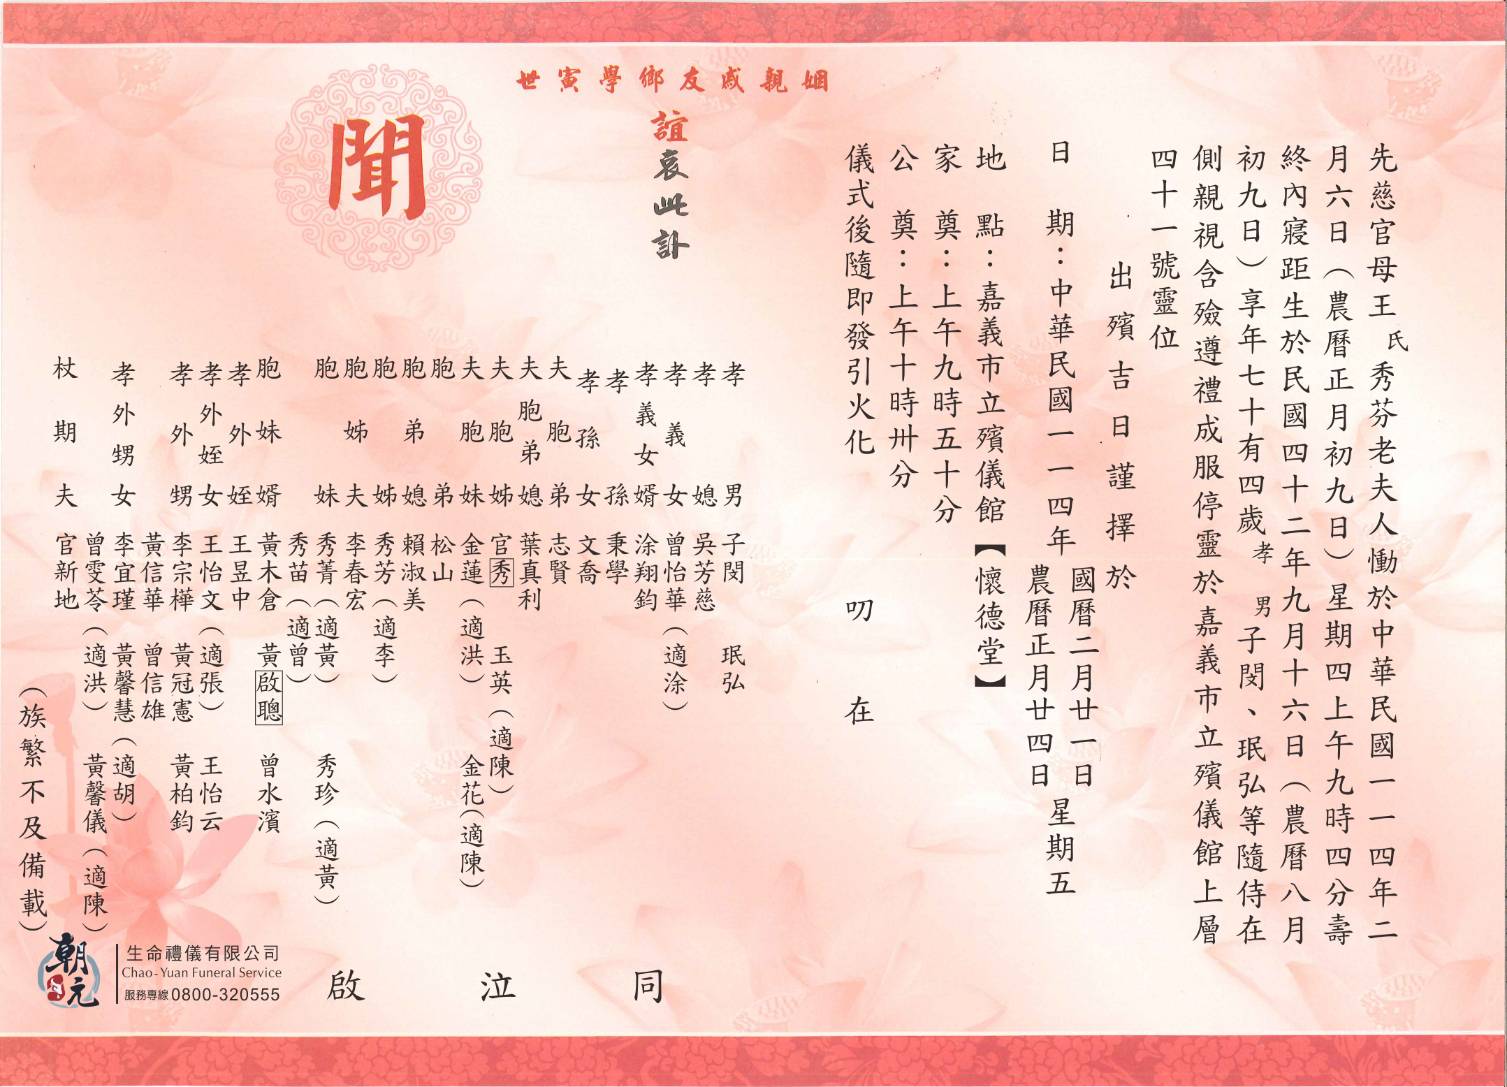 先慈官母王氏秀芬老夫人慟於中華民國一一四年二
月六日（農曆正月初九日）星期四上午九時四分壽
終內寢距生於民國四十二年九月十六日（農曆八月
初九日）享年七十有四歲孝男子閔、珉弘等隨侍在
側親視含殮遵禮成服停靈於嘉義市立殯儀館上層
四十一號靈位
出殯吉日謹擇於
日期：中華民國一一四年國曆二月廿一日農曆正月廿四日星期五
地點：嘉義市立殯儀館【懷德堂】
家奠：上午九時五十分
公奠：上午十時卅分
儀式後隨即發引火化
叨在
姻親戚友鄉學寅世
誼哀此訃
聞
孝男 子閔 珉弘
孝媳 吳芳慈
孝義女 曾怡華（適涂）
孝義女婿 涂翔鈞
孝孫 秉學
孝孫女 文喬
夫胞弟 志賢
夫胞弟媳 葉真利
夫胞姊 官秀 玉英（適陳）
夫胞妹 金蓮（適洪） 金花（適陳）
胞弟 松山
胞弟媳 賴淑美
胞姊 秀芳（適李）
胞姊夫 李春宏
胞妹 秀菁（適黃） 秀珍（適黃）
秀苗（適曾）
胞妹婿 黃木倉 黃啟聰 曾水濱
孝外姪 王昱中
孝外姪女 王怡文（適張） 王怡云
孝外甥 李宗樺 黃冠憲 黃柏鈞
黃信華 曾信雄
孝外甥女 李宜瑾 黃馨慧（適胡）
曾雯苓（適洪） 黃馨儀（適陳）
杖期夫 官新地
（族繁不及備載）
同泣啟
朝元
生命禮儀有限公司
Chao-Yuan Funeral Service
服務專線0800-320555